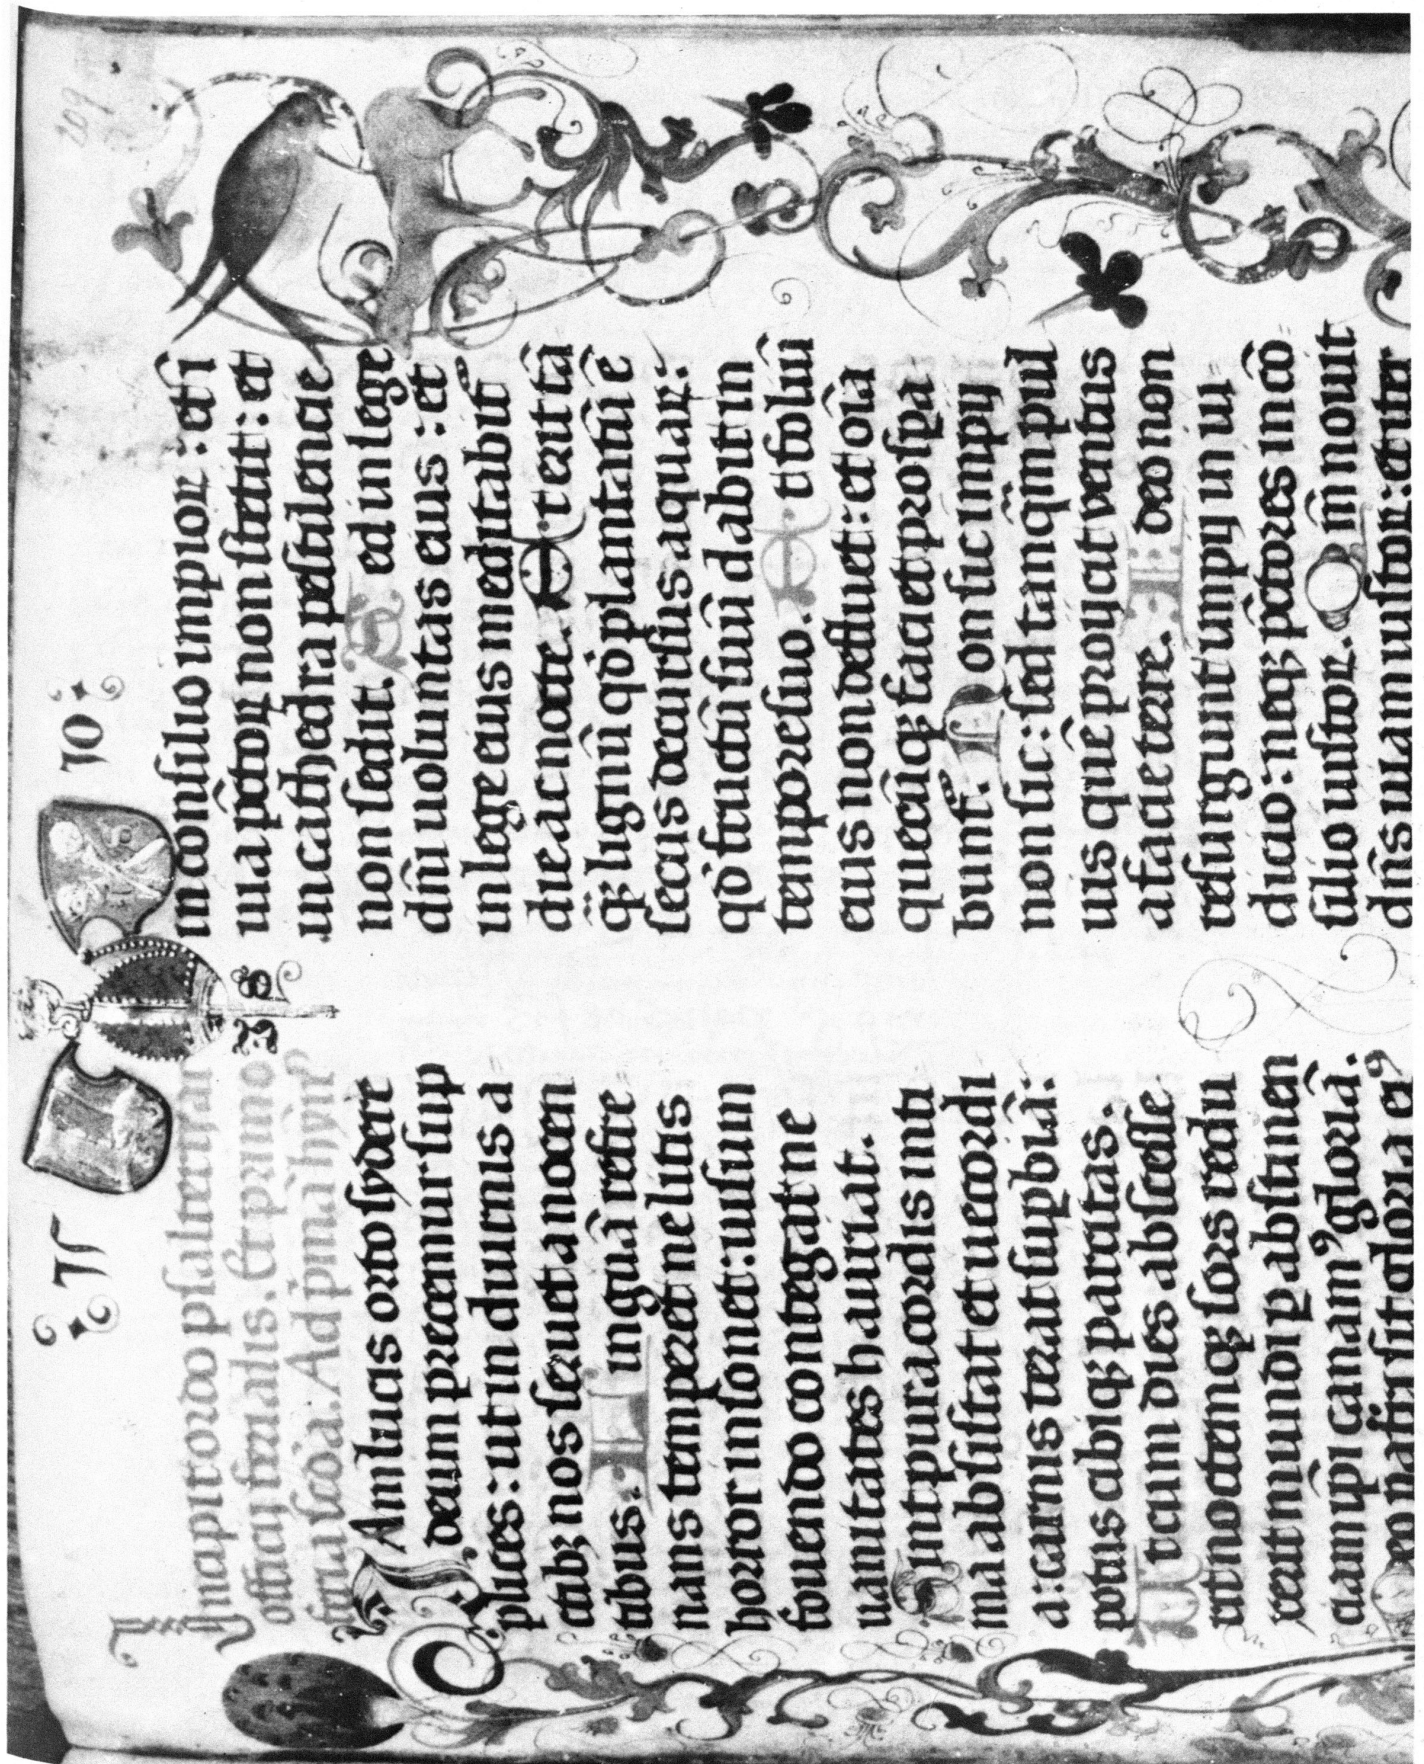 209
Incipit ordo psalterij an
officij ferialis. Et primo
feria scd̄a. Ad p̄mā hȳn9
Iam lucis orto sydere
deum precemur sup
plices: ut in diurnis a
ctibꝫ nos seruet a nocen
tibus. Linguā refre
nans temperet ne litis
horror insonet: uisum
fouendo contegat ne
uanitates hauriat.
Sint pura cordis inti
ma absistat et uecordi
a: carnis terat suꝑbiā:
potus cibiqꝫ parcitas.
Ut cum dies abscesse
rit noctemqꝫ sors redu
xerit mundi ꝑ abstinen
ciam ip̄i canamꝰ gloriā.
Deo patri sit gloria eiꝰ
in consilio impioꝝ: et ī
uia pctōꝝ non stetit: et
in cathedra pestilencie
non sedit. Sed in lege
dn̄i uoluntas eius: et
in lege eius meditabit᷑
die ac nocte. Et erit tā
qꝫ lignū qd̓ plantatū ē
secus decursus aquaꝝ:
qd̓ fructū suū dabit in
tempore suo. Et foliū
eius non defluet: et oīa
quecūqꝫ faciet prospa
bunt᷑. Non sic impij
non sic: sed tanq̄m pul
uis quē proijcit ventus
a facie terre. Ideo non
resurgunt impij in iu
dicio: neqꝫ pctōres in cō
silio iustoꝝ. Qm̄ nouit
dn̄s uiam iustoꝝ: et iter